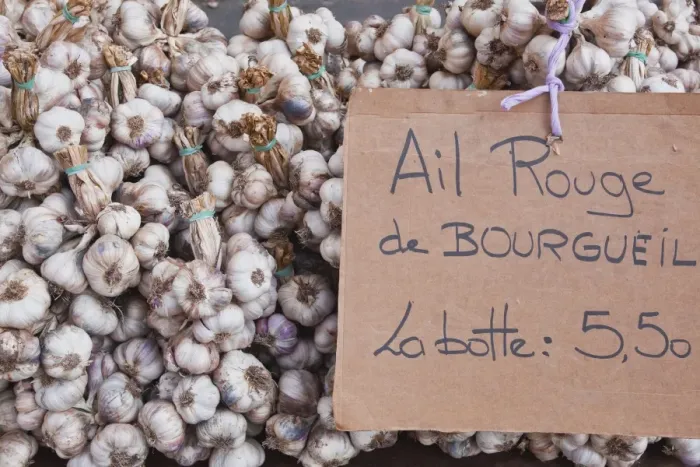 Ail Rouge
de BOURGUEIL
La botte: 5,50